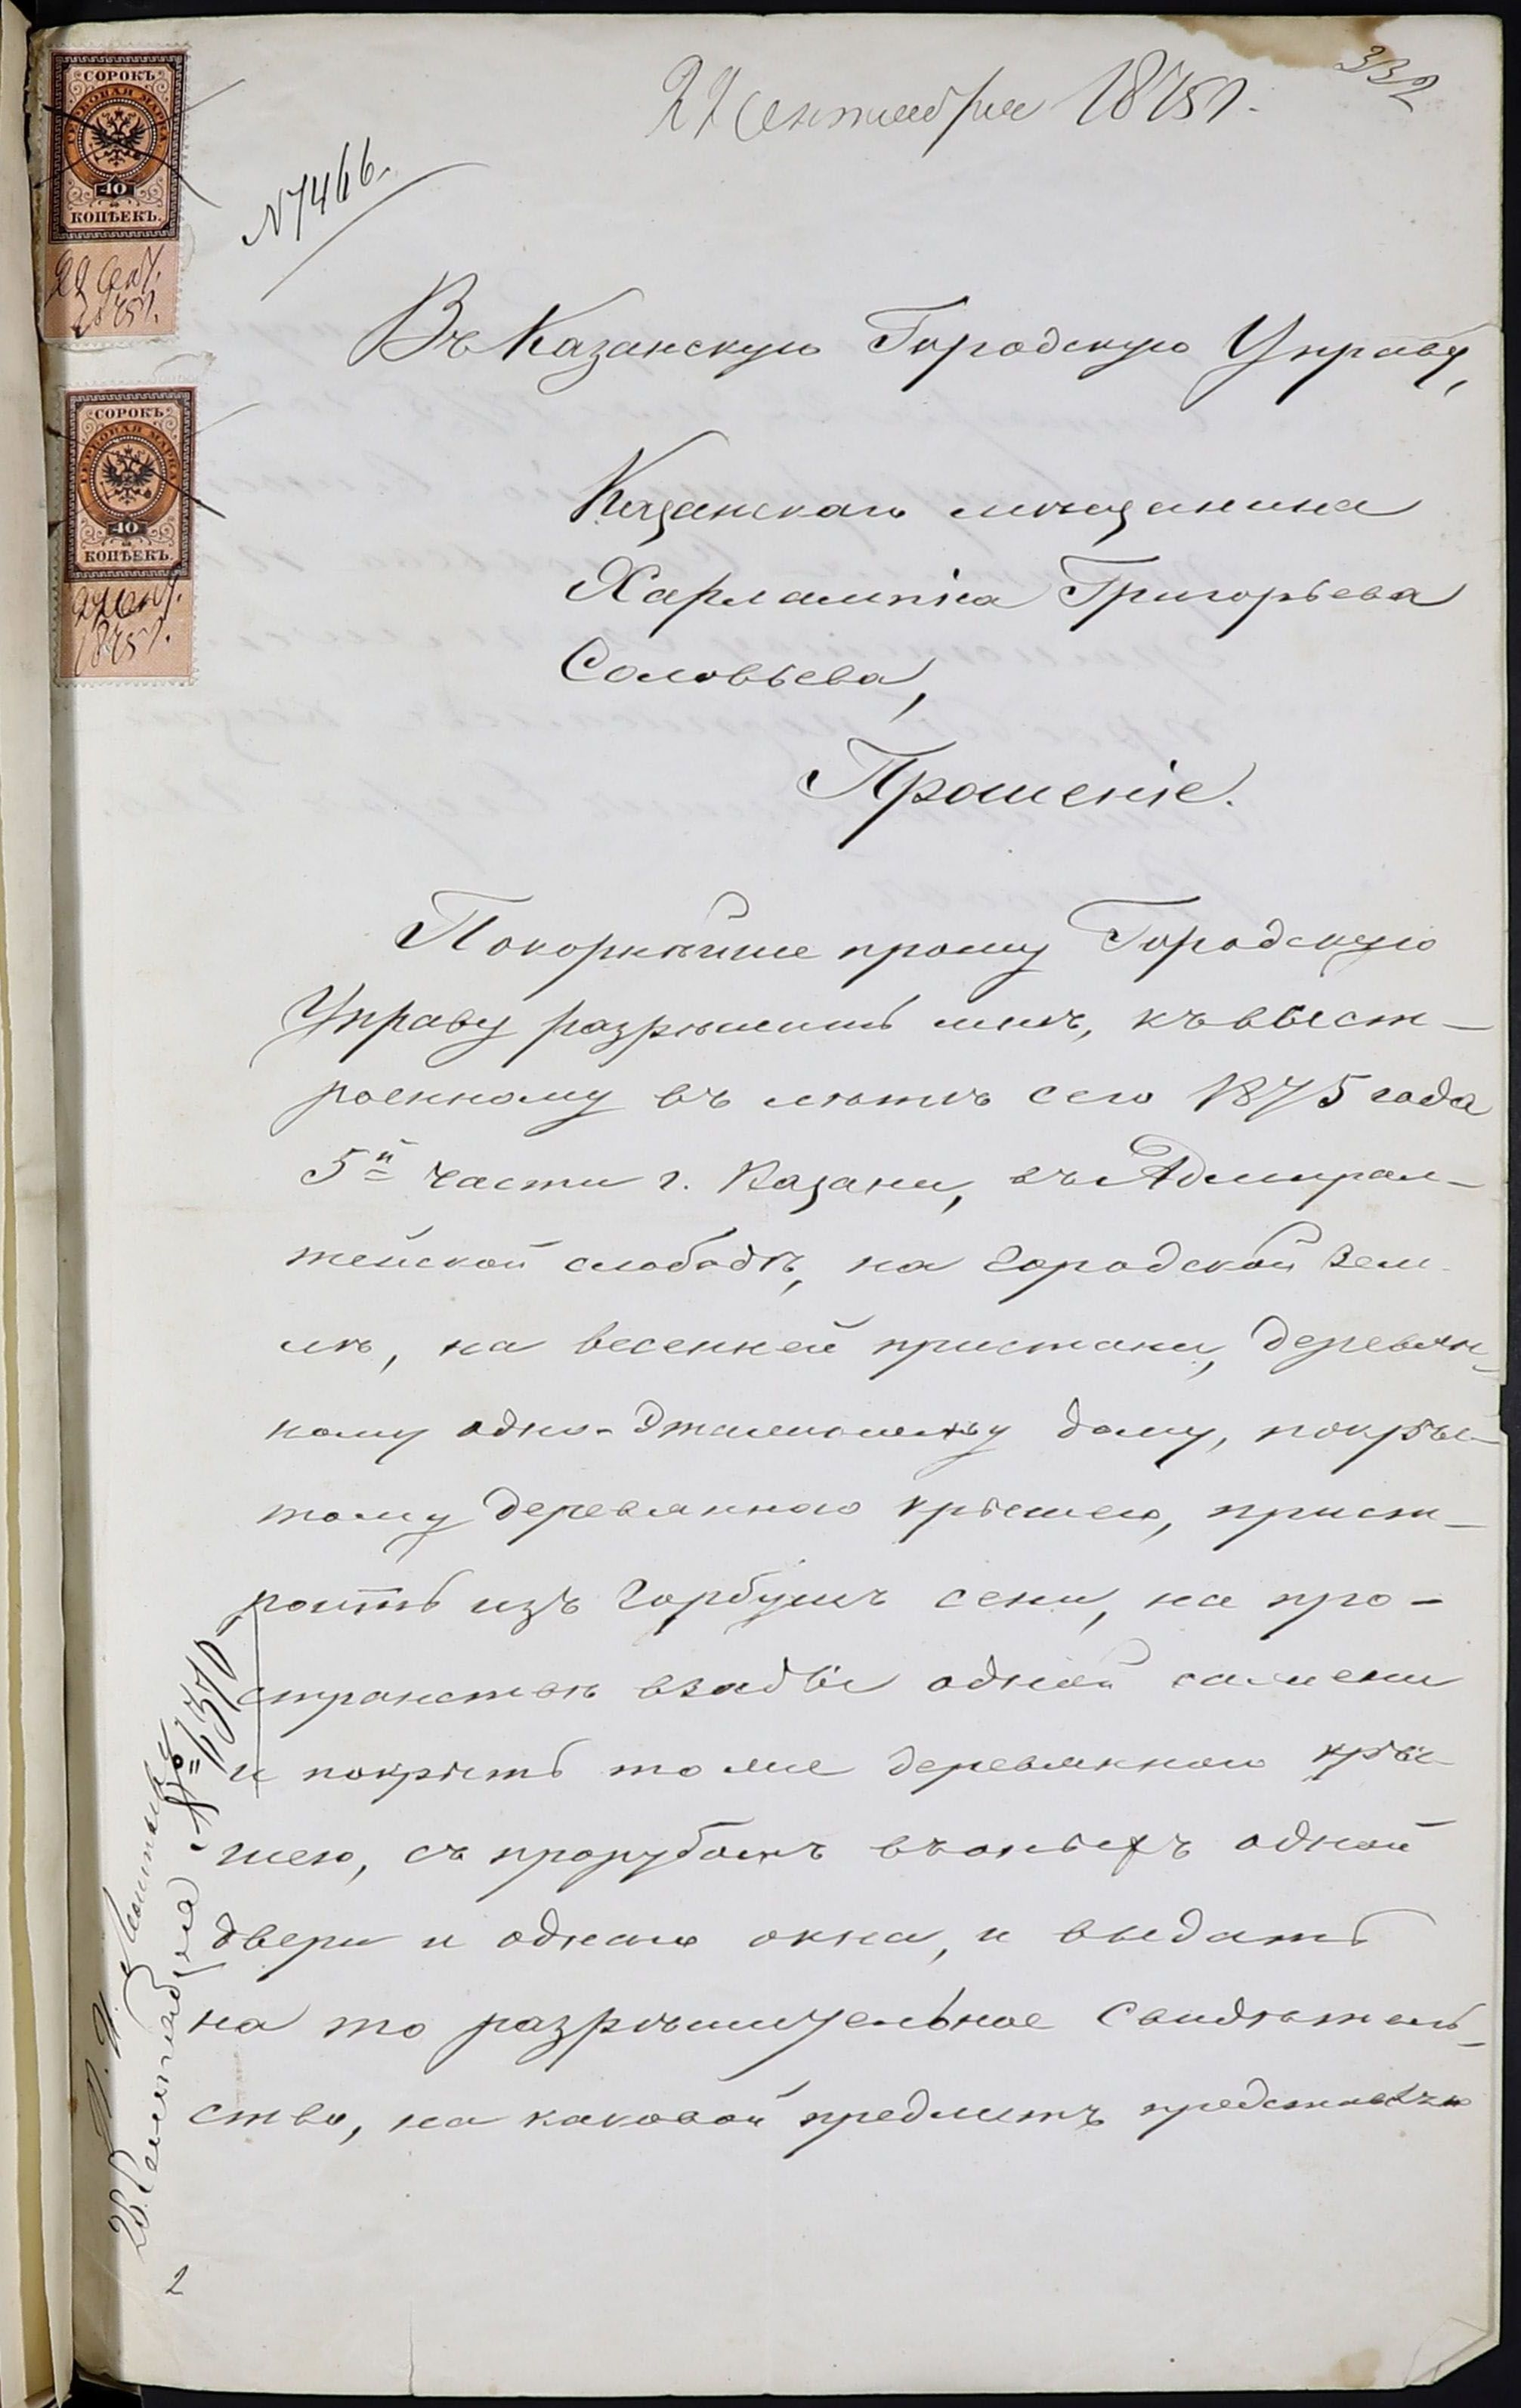 332
22 Сентября 1875 г.
N 7466.
СОРОКЪ
ГЕРБОВАЯ МАРКА
40
КОПѢЕКЪ.
22 Сент.
1875 г.
СОРОКЪ
ГЕРБОВАЯ МАРКА
40
КОПѢЕКЪ.
22 Сент.
1875 г.
Въ Казанскую Городскую Управу,
Казанскаго мѣщанина
Харлампія Григорьева
Соловьева,
Прошеніе.
Покорнѣйше прошу Городскую
Управу разрѣшить мнѣ, къ выст-
роенному въ лѣтѣ сего 1875 года
5й части г. Казани, въ Адмирал-
тейской слободѣ, на городской зем-
лѣ, на весенней пристани, деревян-
ному одно-этажному дому, покры-
тому деревянною крышею, прист-
роить изъ горбушъ сени, на про-
странствѣ взадъ одной сажени
и покрыть тоже деревянною кры-
шею, съ прорубомъ въ оныхъ одной
двери и одного окна, и выдать
на то разрѣшительное свидѣтель-
ство, на каковой предметъ представляю
№ 4370
28 Сентября
2